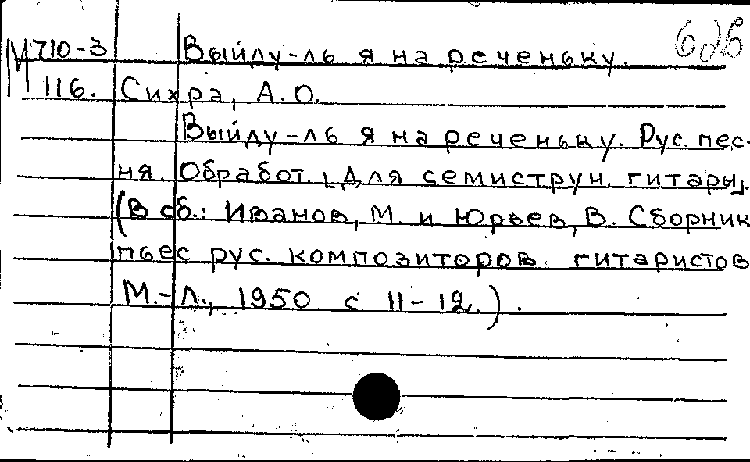 М710-3 Выйду-ль я на реченьку.
116. Сихра, А.О.
Выйду-ль я на реченьку. Рус. пес-
ня. Обработ. для семиструн. гитары.
(В сб.: Иванов, М. и Юрьев, В. Сборник
пьес рус. композиторов гитаристов
М.-Л., 1950 с 11-12.).